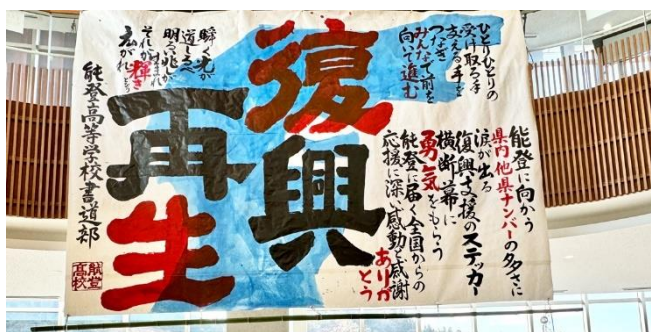 ひとりひとりの
受け取る手
支える手を
つなぎ
みんなで前を
向いて進む
能登に向かう
県内他県ナンバーの多さに
涙が出る
復興支援のステッカー
横断幕に
勇気をもらう
能登に届く全国からの
応援に深い感動と感謝
ありがとう
復興
再生
瞬く光が
道しるべ
明るい兆が
輝き
広がれ
能登高等学校書道部
能登
高校